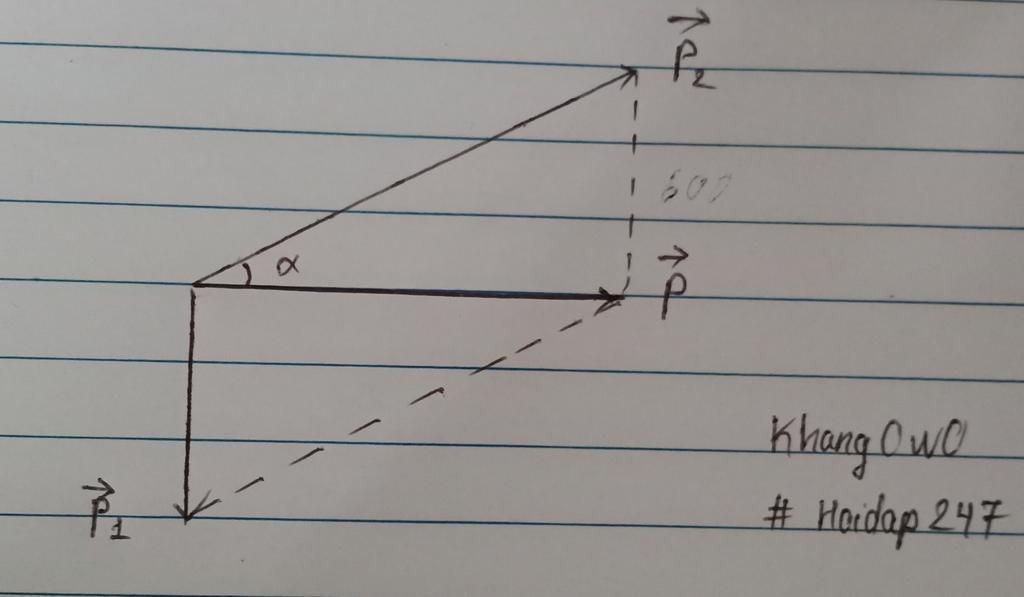 P₂
α
P
P₁
Khang OwO
# Hoidap 247